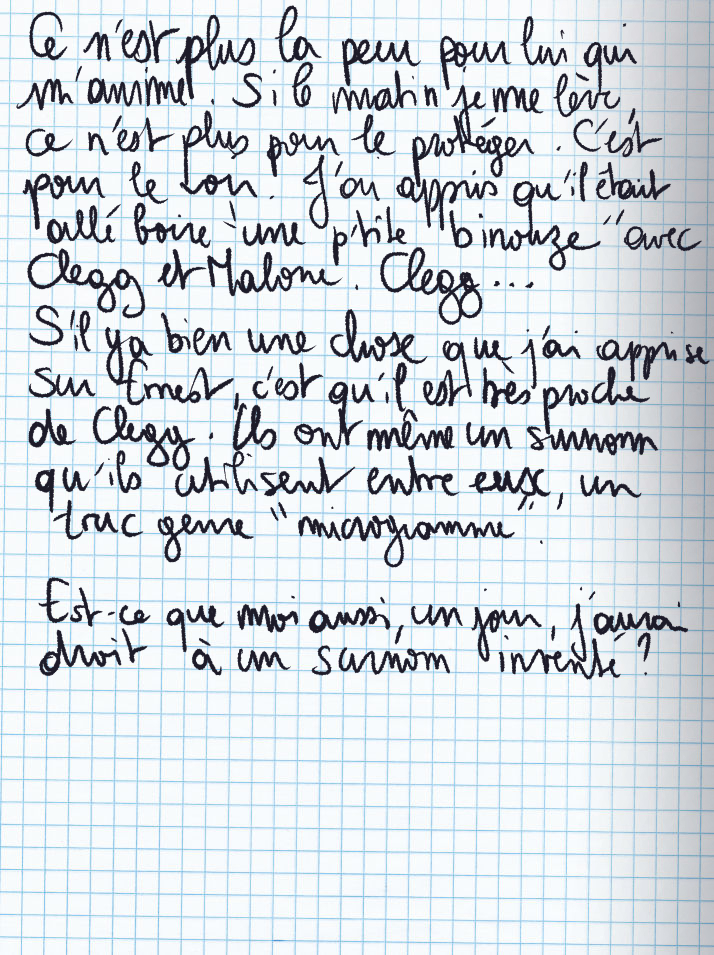 Ce n'est plus la peur pour lui qui
m'anime. Si le matin je me lève,
ce n'est plus pour le protéger. C'est
pour le voir. J'ai appris qu'il était
allé boire une p'tite "binouze" avec
Clegg et Malone. Clegg...
S'il y a bien une chose que j'ai apprise
sur Ernest, c'est qu'il est très proche
de Clegg. Ils ont même un surnom
qu'ils utilisent entre eux, un
truc genre "microgramme".
Est-ce que moi aussi, un jour, j'aurai
droit à un surnom inventé ?